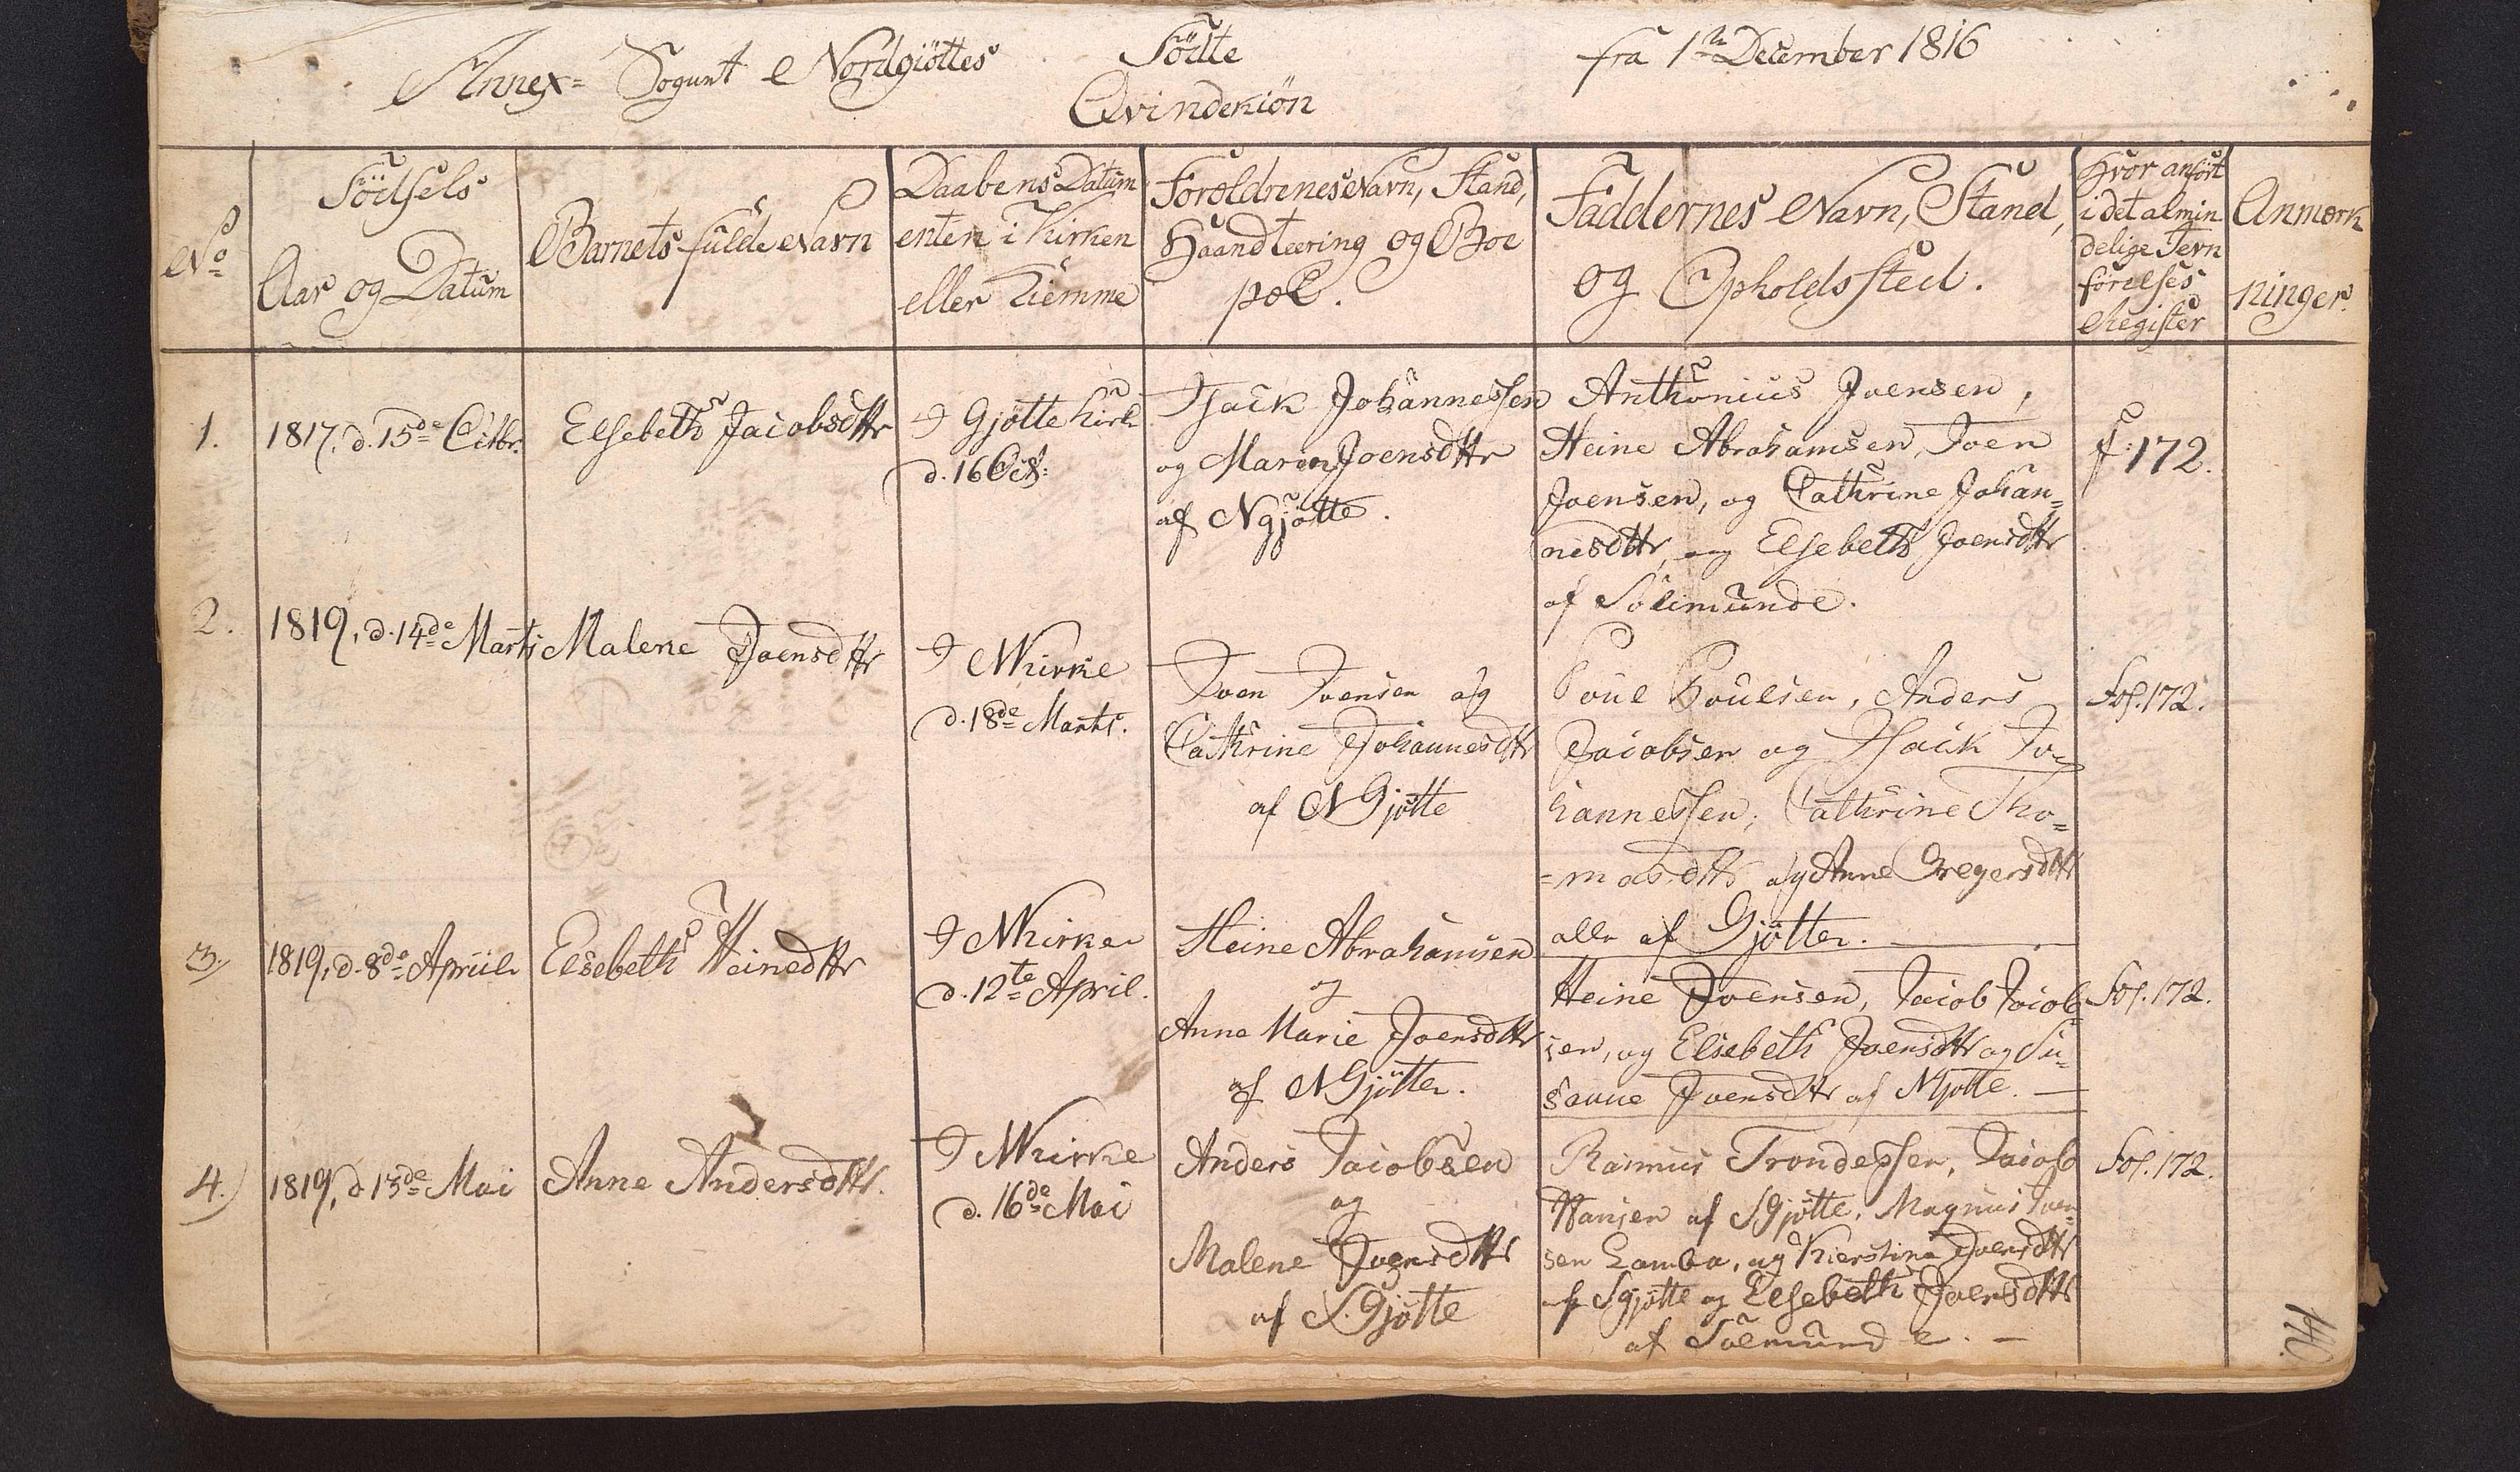 Annex= Sognet Nordgiöttes
Födte
Qvindekiön
fra 1te December 1816
No
Födsels
Aar og Datum
Barnets fulde Navn
Daabens Datum
enten i Kirken
eller Hiemme
Forældrenes Navn, Stand,
Haandteering og Boe
pæl.
Faddernes Navn, Stand,
og Opholdssted.
Hvor anfört
i det almin
delige Jevn
förelses
Register
Anmærk
ninger.
1.
1817, d. 15de Octbr.
Elsebeth Jacobsdttr
I Gjötte Kirk
d. 16 Oct:
Isack Johannessen
og Maren Joensdttr
af NGjötte.
Anthonius Joensen,
Heine Abrahamsen, Joen
Joensen, og Cathrine Johan=
nesdttr, og Elsebeth Joensdttr
af Sölemunde.
f. 172.
2.
1819, d. 14de Marts
Malene Joensdttr
I NKirke
d. 18de Marts.
Joen Joensen og
Cathrine Johannesdttr
af NGjötte
Poul Poulsen, Anders
Jacobsen og Isack Jo=
hannessen, Cathrine Tho=
=masdttr og Anne Gregersdttr
alle af Gjötte.
Fol. 172.
3.
1819, d. 8de Apriil
Elsebeth Heinedttr
I NKirke
d. 12te April.
Heine Abrahamsen
og
Anne Marie Joensdttr
af NGjötte.
Heine Joensen, Jacob Jacob=
sen, og Elsebeth Joensdttr og Su=
sanne Joensdttr af NGjötte.
Fol. 172.
4.)
1819, d. 13de Mai
Anne Andersdttr.
I NKirke
d. 16de Mai
Anders Jacobsen
og
Malene Joensdttr
af S.Gjötte
Rasmus Trondessen, Jacob
Hansen af SGjötte, Magnus Joen=
sen Lamba, og Kierstine Joensdttr
af SGjötte og Elsebeth Joensdttr
af Sölemunde.
Fol. 172.
140.